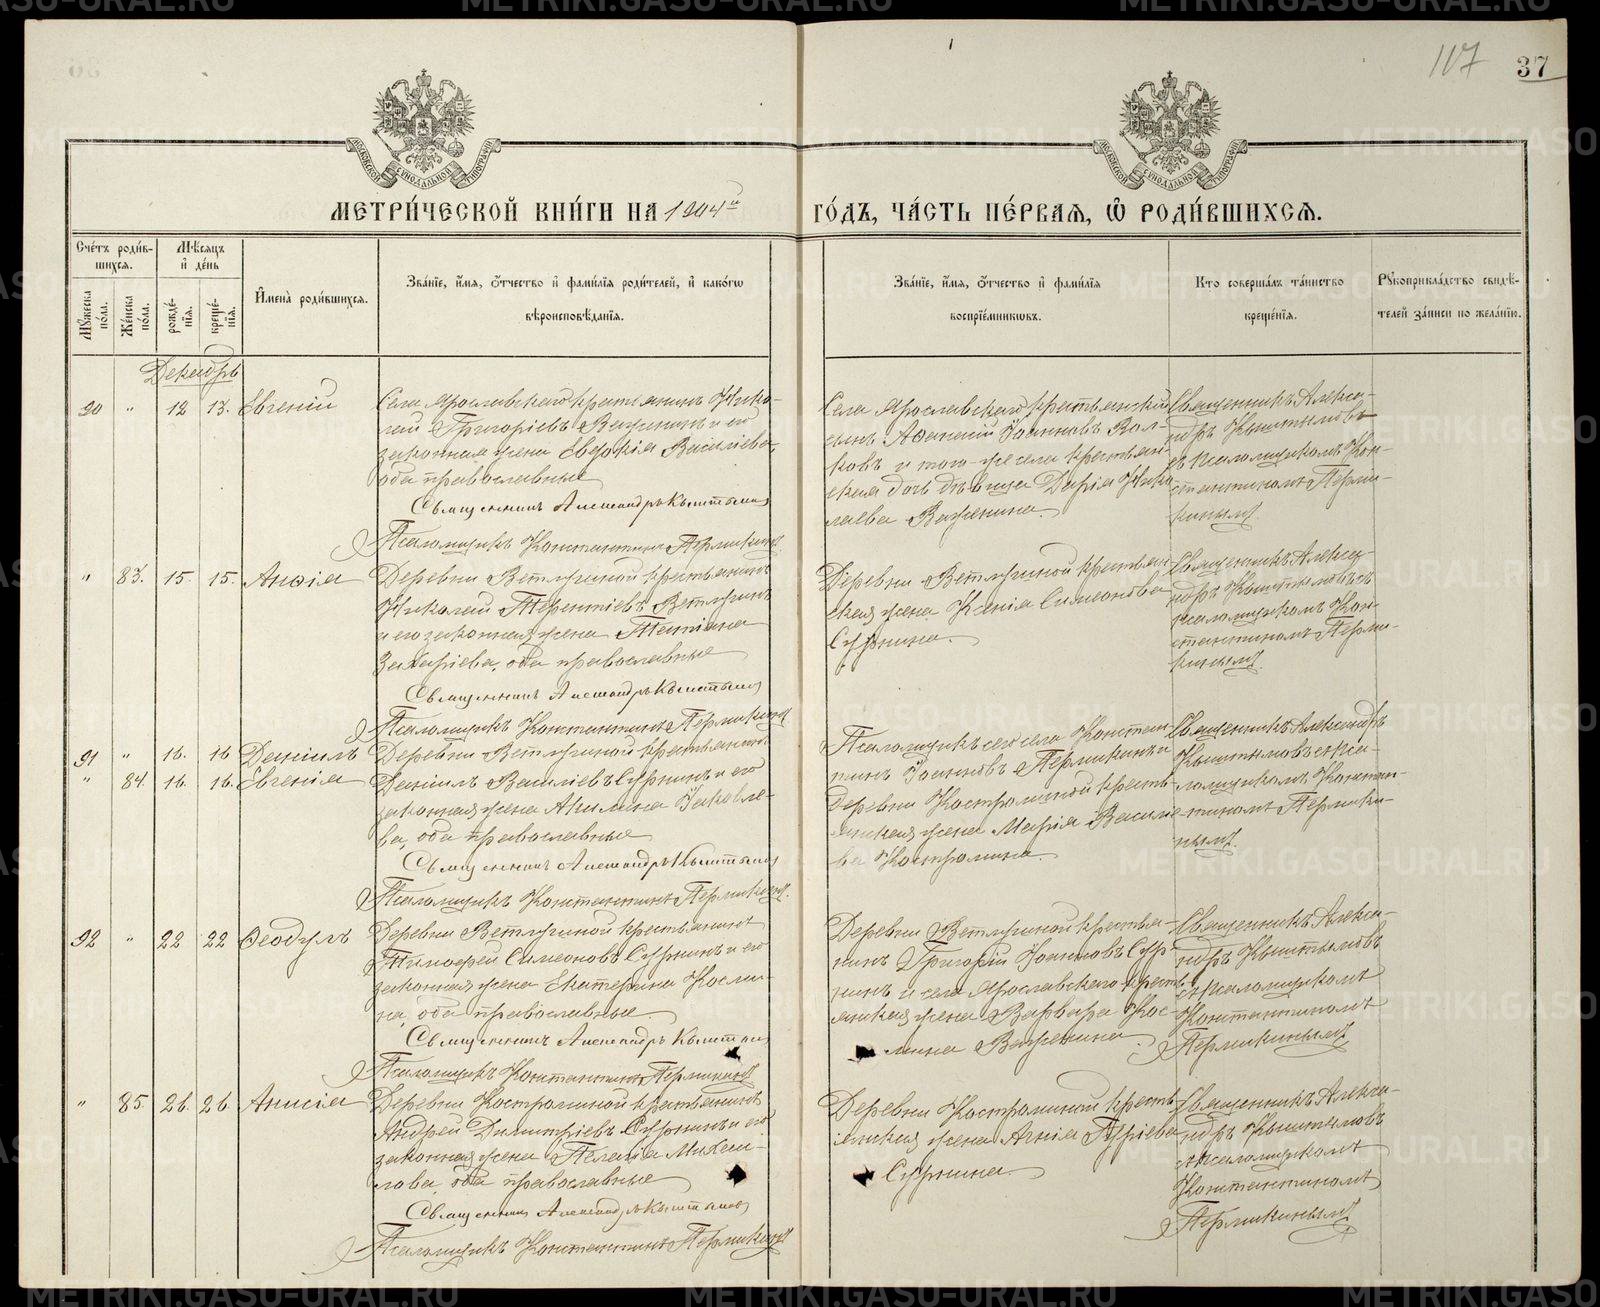 107 37
МЕТРИЧЕСКОЙ КНИГИ НА 1904й ГОДЪ, ЧАСТЬ ПЕРВАЯ, Ѡ РОДИВШИХСЯ.
Счетъ родившихся.
Мужеска пола.
Женска пола.
Мѣсяцъ и день
рожденія.
крещенія.
Имена родившихся.
Званіе, имя, отчество и фамилія родителей, и какогѡ вѣроисповѣданія.
Званіе, имя, отчество и фамилія воспріемниковъ.
Кто совершалъ таинство крещенія.
Рукоприкладство свидѣтелей записи по желанію.
Декабрь
90 " 12 13. Евгеній
Села Ярославскаго крестьянинъ Нико-
лай Григоріевъ Важенинъ и его
законная жена Евдокія Василіева,
оба православные
Священникъ Александръ Кыштымовъ
Псаломщикъ Константинъ Пермикинъ
Села Ярославскаго крестьянскій
сынъ Аѳанасій Іоанновъ Вол-
ковъ и того-же села крестьян-
ская дочь дѣвица Дарія Нико-
лаева Важенина.
Священникъ Алекса-
ндръ Кыштымовъ
съ псаломщикомъ Кон-
стантиномъ Перми-
кинымъ
" 83. 15. 15. Анѳія
Деревни Ветлугиной крестьянинъ
Николай Терентіевъ Ветлугинъ
и его законная жена Татіана
Захаріева, оба православные
Священникъ Александръ Кыштымовъ
Псаломщикъ Константинъ Пермикинъ
Деревни Ветлугиной крестьян-
ская жена Ксенія Симеонова
Суринина.
Священникъ Алекса-
ндръ Кыштымовъ съ
псаломщикомъ Кон-
стантиномъ Перми-
кинымъ.
91 " 16. 16 Даніилъ
" 84. 16. 16. Евгенія
Деревни Ветлугиной крестьянинъ
Даніилъ Василіевъ и его
законная жена Акилина Іаковле-
ва, оба православные
Священникъ Александръ Кыштымовъ
Псаломщикъ Константинъ Пермикинъ.
Псаломщикъ сего села Констан-
тинъ Іоанновъ Пермикинъ и
деревни Костроминой кресть-
янская жена Марія Василіе-
ва Костромина.
Священникъ Александръ
Кыштымовъ съ пса-
ломщикомъ Констан-
тиномъ Пермики-
нымъ.
92 " 22 22 Ѳеодулъ
Деревни Ветлугиной крестьянинъ
Тимоѳей Симеоновъ и его
законная жена Екатерина Косми-
на, оба православные.
Священникъ Александръ Кыштымовъ
Псаломщикъ Константинъ Пермикинъ
Деревни Ветлугиной крестья-
нинъ Григорій Іоанновъ
и села Ярославскаго кресть-
янская жена Варвара Кос-
мина Важенина.
Священникъ Алекса-
ндръ Кыштымовъ
съ псаломщикомъ
Константиномъ
Пермикинымъ
" 85. 26. 26. Анисія
Деревни Костроминой крестьянинъ
Андрей Димитріевъ и его
законная жена Пелагія Михаи-
лова, оба православные
Священникъ Александръ Кыштымовъ
Псаломщикъ Константинъ Пермикинъ
Деревни Костроминой кресть-
янская жена Агнія Гуріева
Священникъ Алекса-
ндръ Кыштымовъ
съ псаломщикомъ
Константиномъ
Пермикинымъ
METRIKI.GASO-URAL.RU